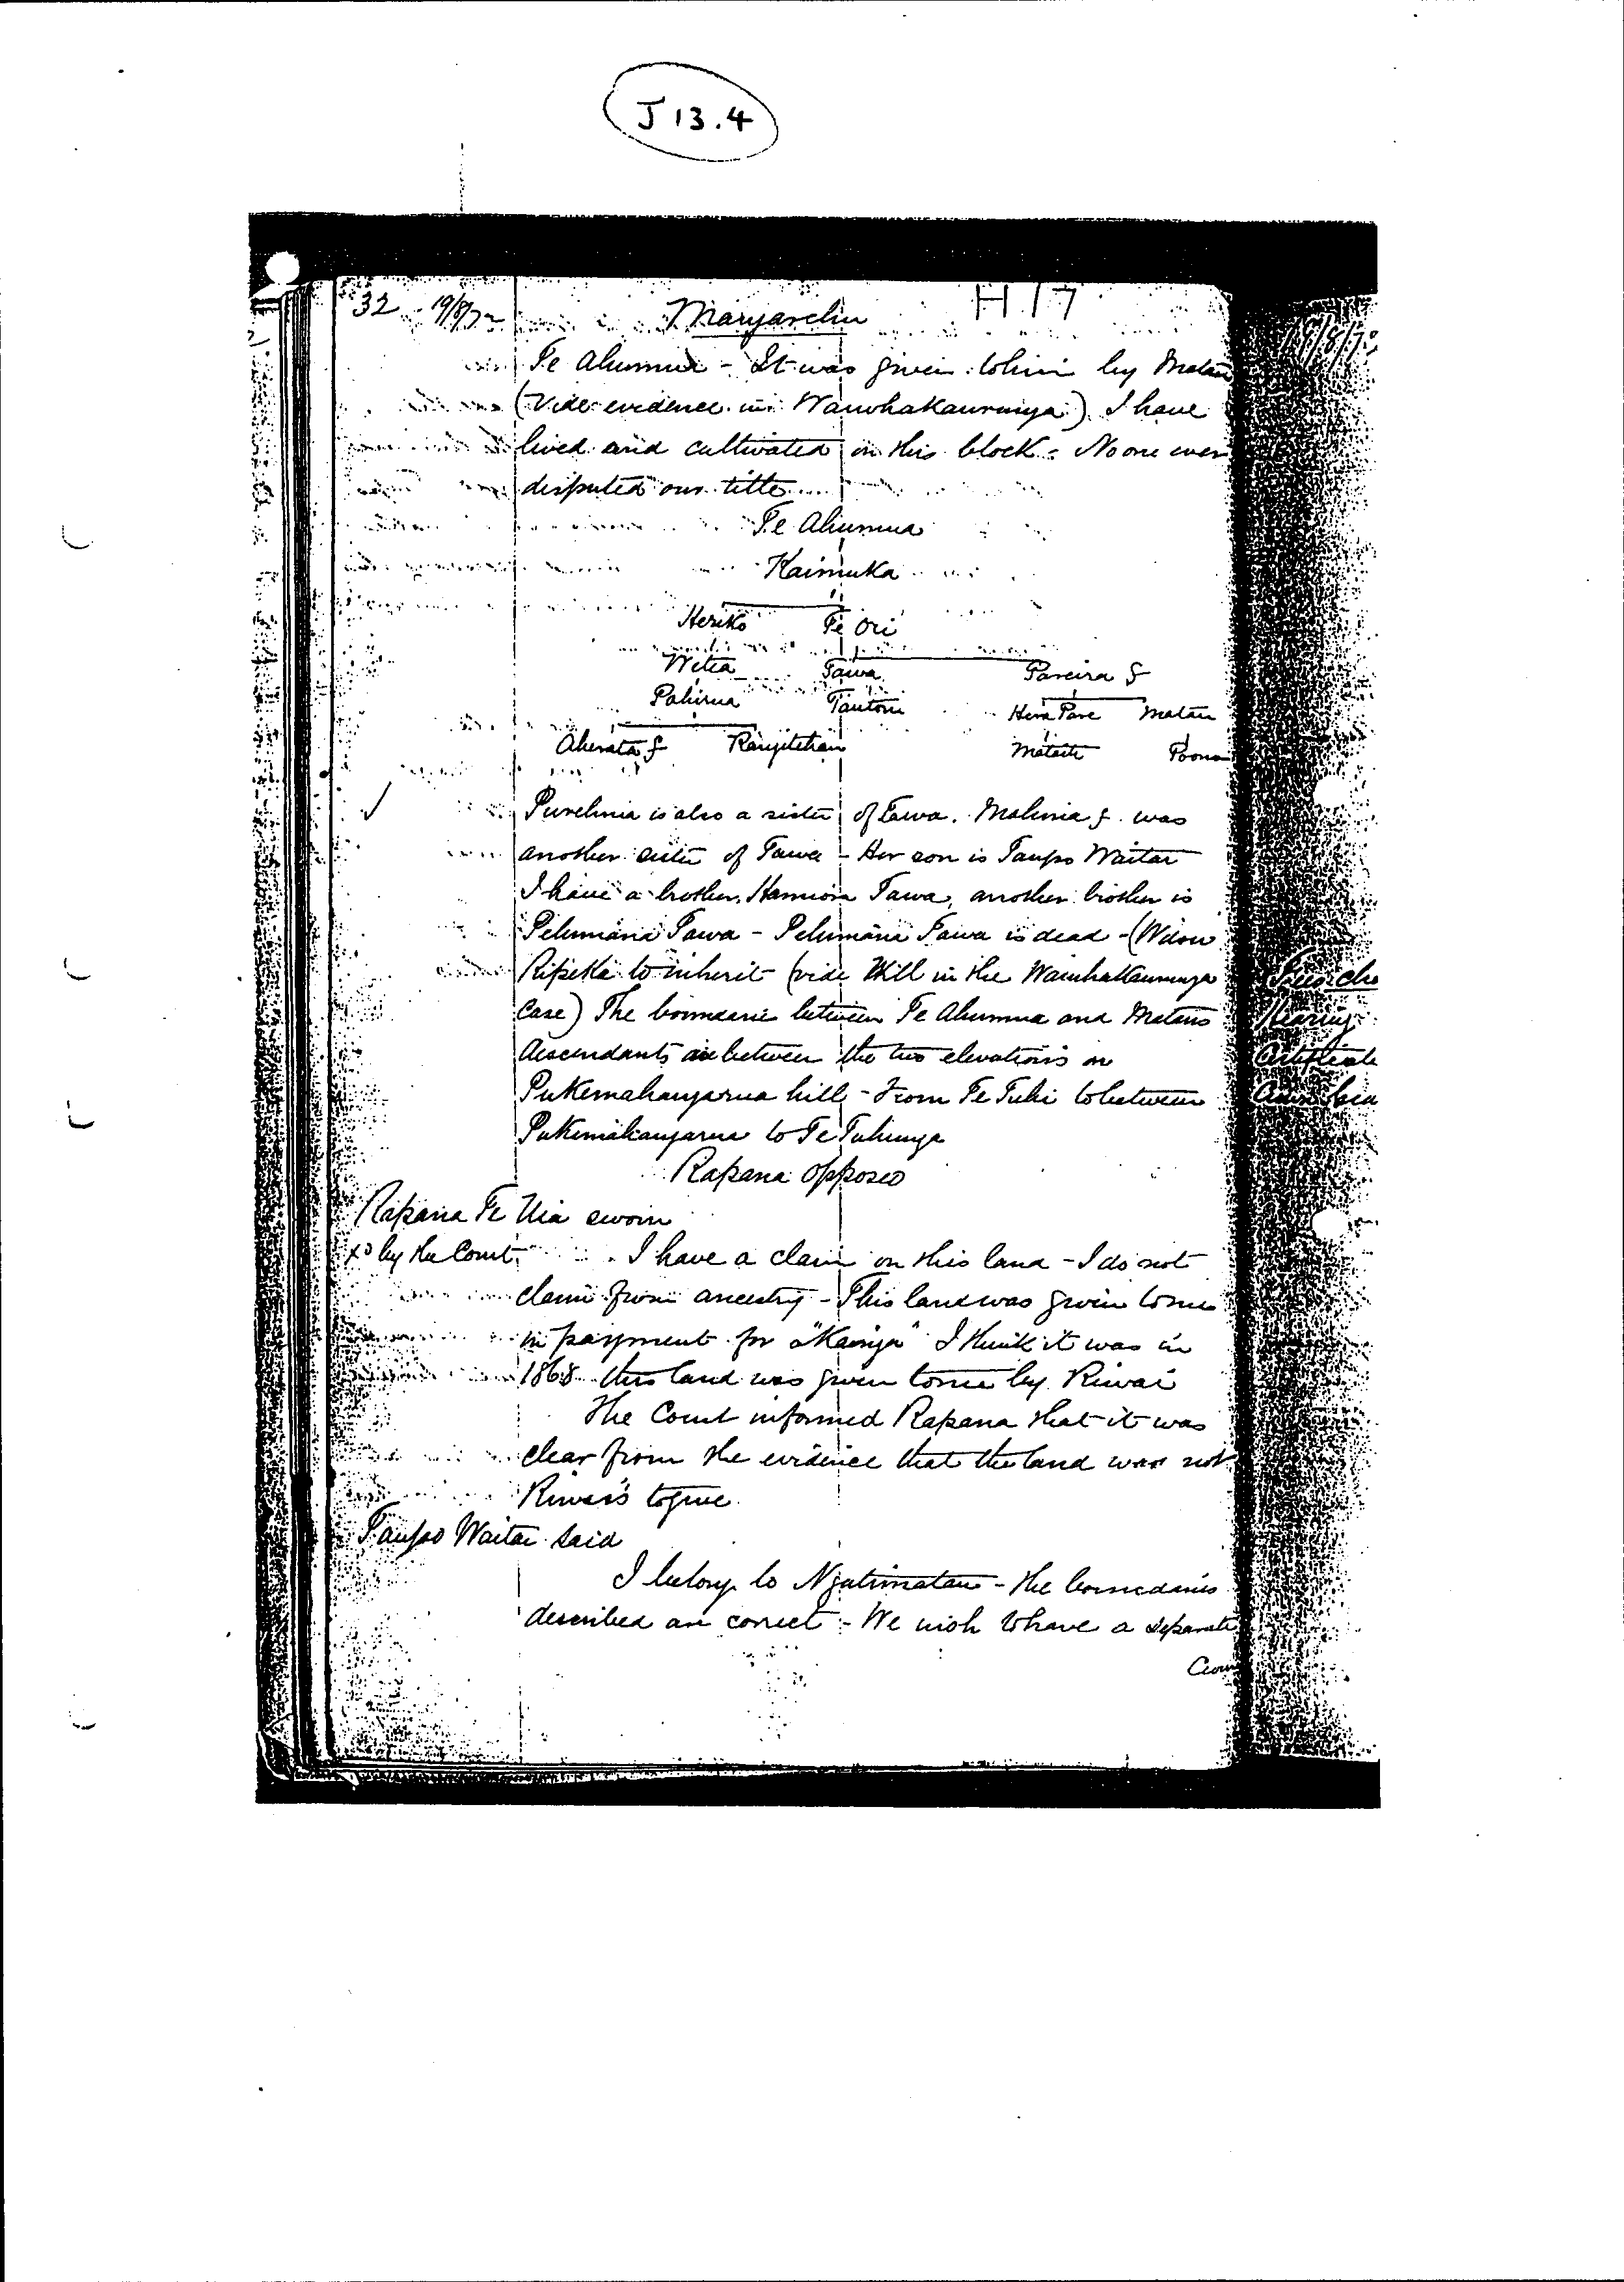 J 13.4
32 19/8/72 Mangarehu H 17
Te Ahumua - It was given to him by Matau
(Vide evidence in Waiwhakaurunga) I have
lived and cultivated on this block - No one ever
disputed our title
Te Ahumua
Kaimuka
Heriko Te Ori
Wetea Tawa Pareira f
Pahirua Tautoru Hera Pare Matau
Aherata f Rangitehau Matait Poona
is also a sister of Tawa. f. was
another sister of Tawa - Her son is Taupo Waitai
I have a brother, Hamiora Tawa, another brother is
Pehimana Tawa - Pehimana Tawa is dead - (Widow
Ripeka to inherit (vide Will in the Waiwhakaurunga
Case) The boundaries between Te Ahumua and Mataus
descendants are between the two elevations on
Pukemahangarua hill - From Te Tuhi to between
Pukemahangarua to Te Tuhunga
Rapana opposed
Rapana Te sworn
xd by the Court I have a claim on this land - I do not
claim from ancestry - This land was given to me
in payment for a "Kanga" I think it was in
1868 this land was given to me by Riwai
The Court informed Rapana that it was
clear from the evidence that the land was not
Riwai's to give.
Taupo Waitai said
I belong to Ngatimatau - the boundaries
described are correct - We wish to have a separate
Crown
Hearing
Certificate